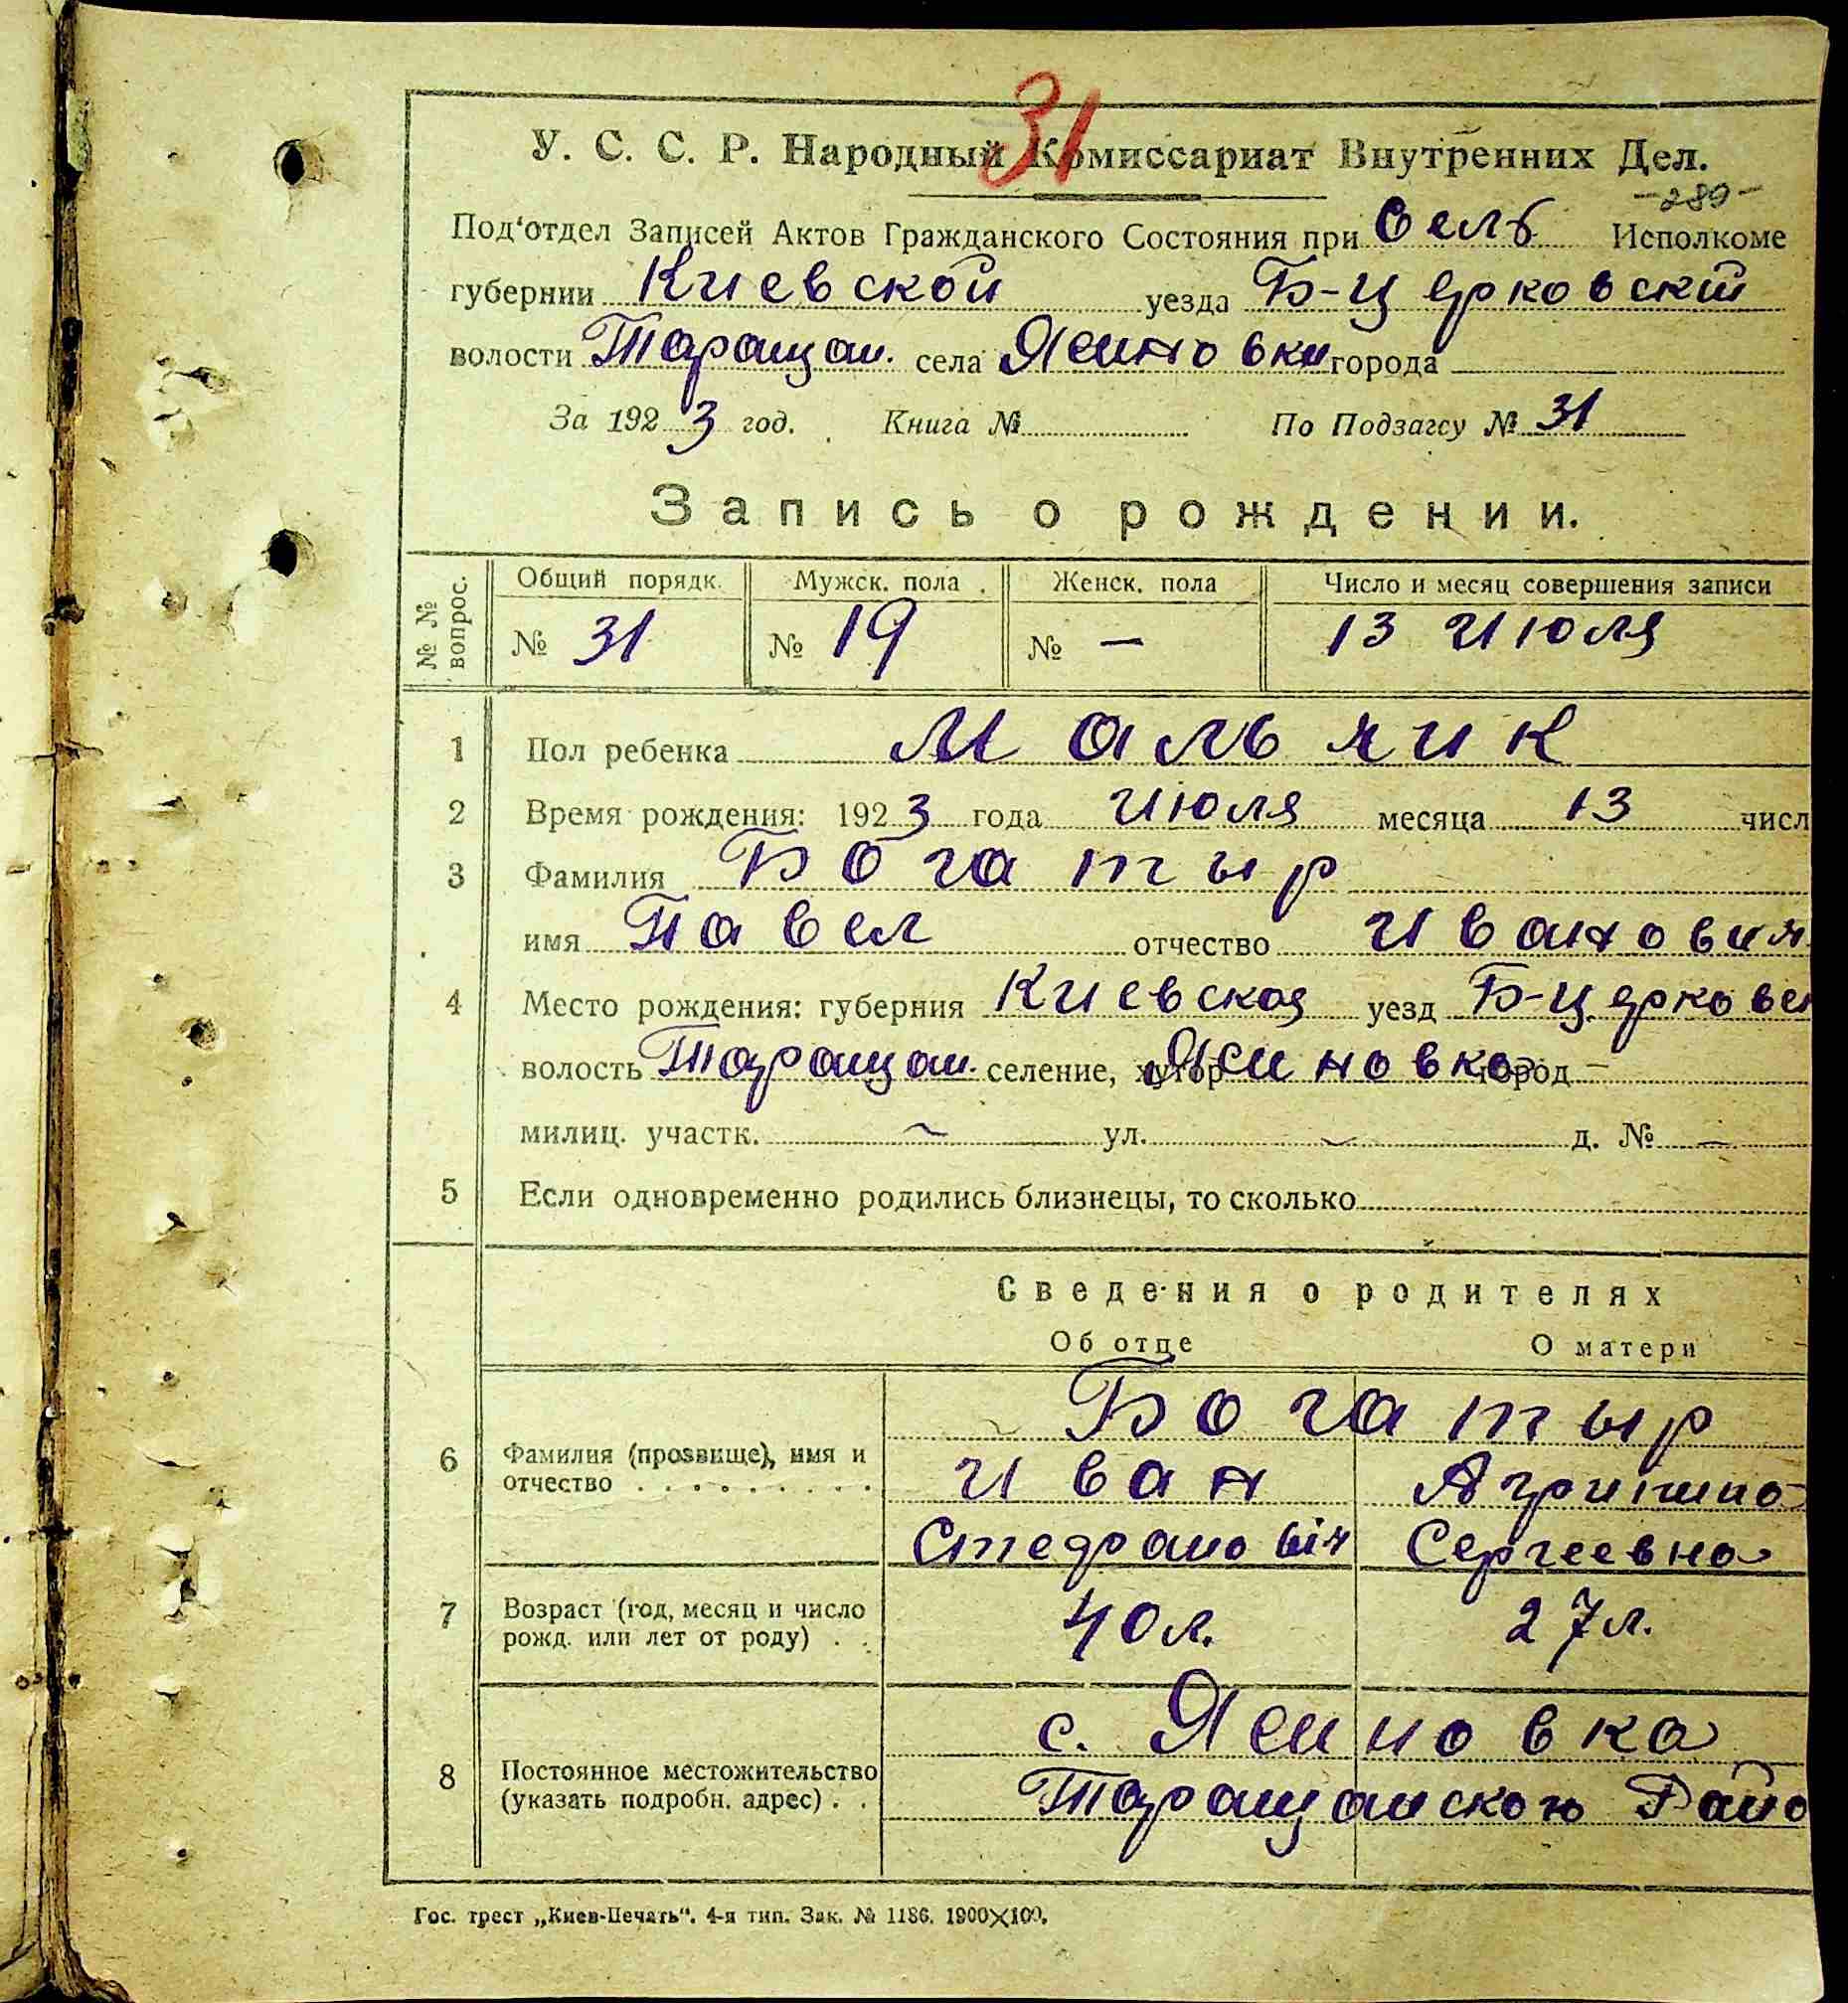 31
У. С. С. Р. Народный Комиссариат Внутренних Дел.
-289-
Под'отдел Записей Актов Гражданского Состояния при Сельб Исполкоме
губернии Киевской уезда Б-Церковский
волости Таращан. села Ясиновки города
За 1923 год. Книга № По Подзагсу № 31
Запись о рождении.
№ № вопрос. Общий порядк. Мужск. пола Женск. пола Число и месяц совершения записи
№ 31 № 19 № — 13 Июля
1 Пол ребенка Мальчик
2 Время рождения: 1923 года Июля месяца 13 числ
3 Фамилия Богатыр
имя Павел отчество Иванович
4 Место рождения: губерния Киевская уезд Б-Церковск
волость Таращан. селение, хутор Ясиновка город —
милиц. участк. — ул. — д. № —
5 Если одновременно родились близнецы, то сколько
Сведения о родителях
Об отце О матери
Богатыр
6 Фамилия (прозвище), имя и отчество Иван Агрипина
Стефанович Сергеевна
7 Возраст (год, месяц и число рожд. или лет от роду) 40 л. 27 л.
с. Ясиновка
8 Постоянное местожительство (указать подробн. адрес) Таращанского Райо
Гос. трест „Киев-Печать". 4-я тип. Зак. № 1186. 1900×100.